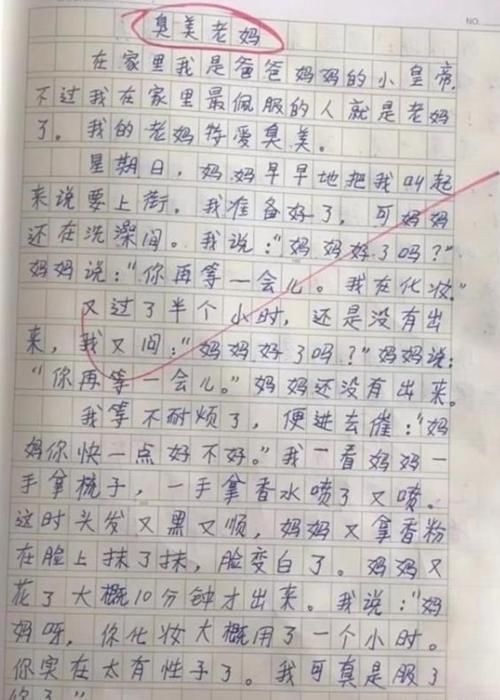 NO.
臭美老妈
在家里我是爸爸妈妈的小皇帝,
不过我在家里最佩服的人就是老妈
了。我的老妈特爱臭美。
星期日,妈妈早早地把我叫起
来说要上街。我准备好了,可妈妈
还在洗澡间。我说:“妈妈好了吗?”
妈妈说:“你再等一会儿。我在化妆。”
又过了半个小时,还是没有出
来,我又问:“妈妈好了吗?”妈妈说:
“你再等一会儿。”妈妈还没有出来。
我等不耐烦了,便进去催:“妈
妈你快一点好不好。”我一看妈妈一
手拿梳子,一手拿香水喷了又喷。
这时头发又黑又顺,妈妈又拿香粉
在脸上抹了抹,脸变白了。妈妈又
花了大概10分钟才出来。我说:“妈
妈呀,你化妆大概用了一个小时。
你实在太有性子了。我可真是服了
你了”